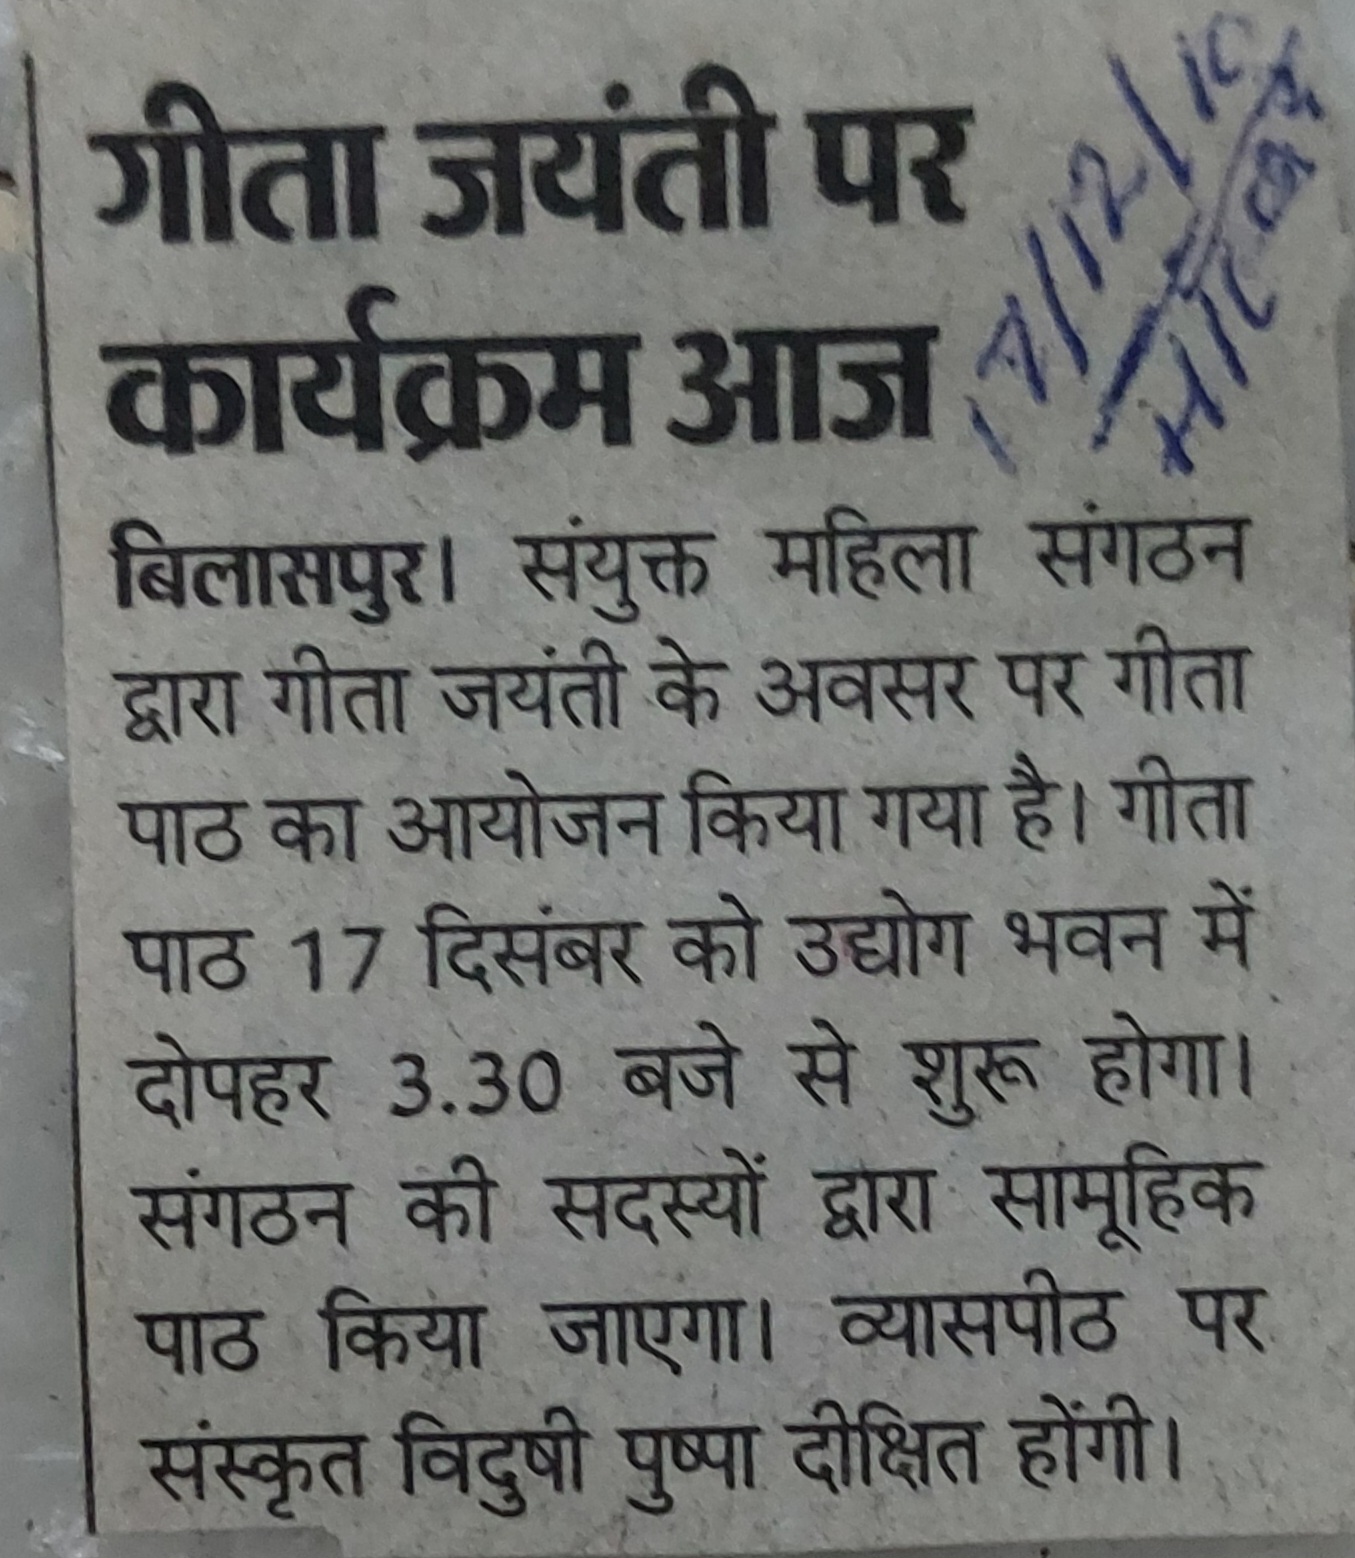 गीता जयंती पर
कार्यक्रम आज
बिलासपुर। संयुक्त महिला संगठन
द्वारा गीता जयंती के अवसर पर गीता
पाठ का आयोजन किया गया है। गीता
पाठ 17 दिसंबर को उद्योग भवन में
दोपहर 3.30 बजे से शुरू होगा।
संगठन की सदस्यों द्वारा सामूहिक
पाठ किया जाएगा। व्यासपीठ पर
संस्कृत विदुषी पुष्पा दीक्षित होंगी।